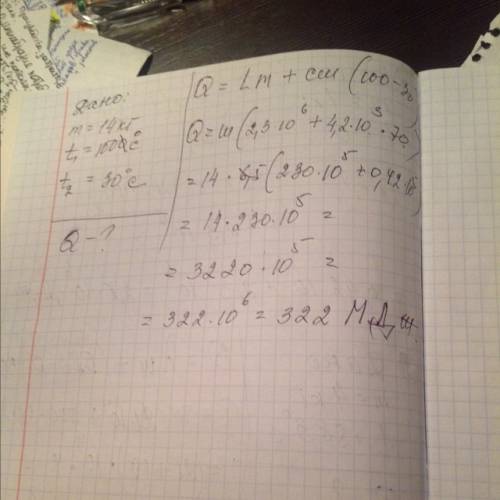 Дано:
m = 14 кг
t₁ = 100°C
t₂ = 30°C
Q - ?
Q = Lm + cm (100-30)
Q = m (2,3·10⁶ + 4,2·10³·70)
= 14 · (230·10⁵ + 0,42·10
= 14·230·10⁵ =
= 3220·10⁵ =
= 322·10⁶ = 322 МДж.